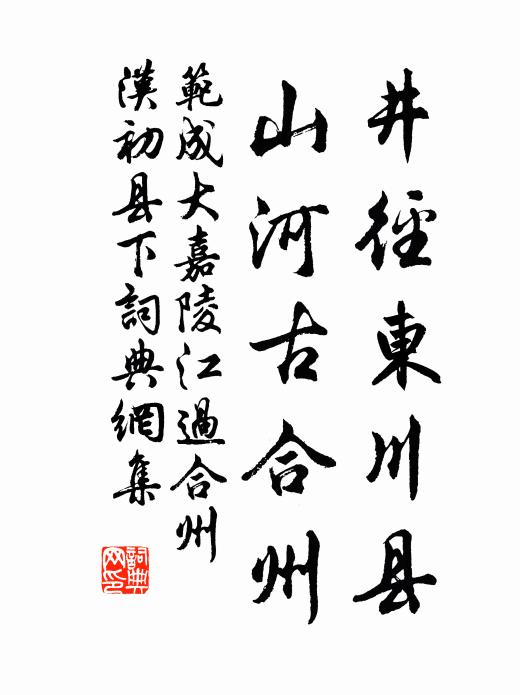 井徑東川县
山河古合州
範成大嘉陵江過合州
漢初县下詞典網集
詞典
网印